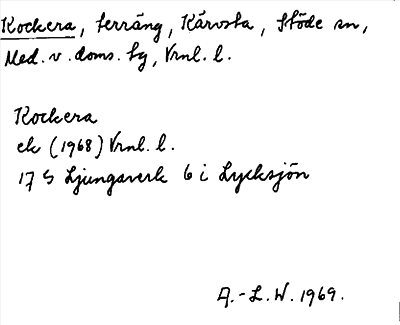 Kockera, terräng, Kärvsta, Stöde sn,
Med. v. doms. tg, Vrnl. l.
Kockera
ek (1968) Vrnl. l.
17 S Ljungaverk 6 i Lycksjön
A.-L. W. 1969.